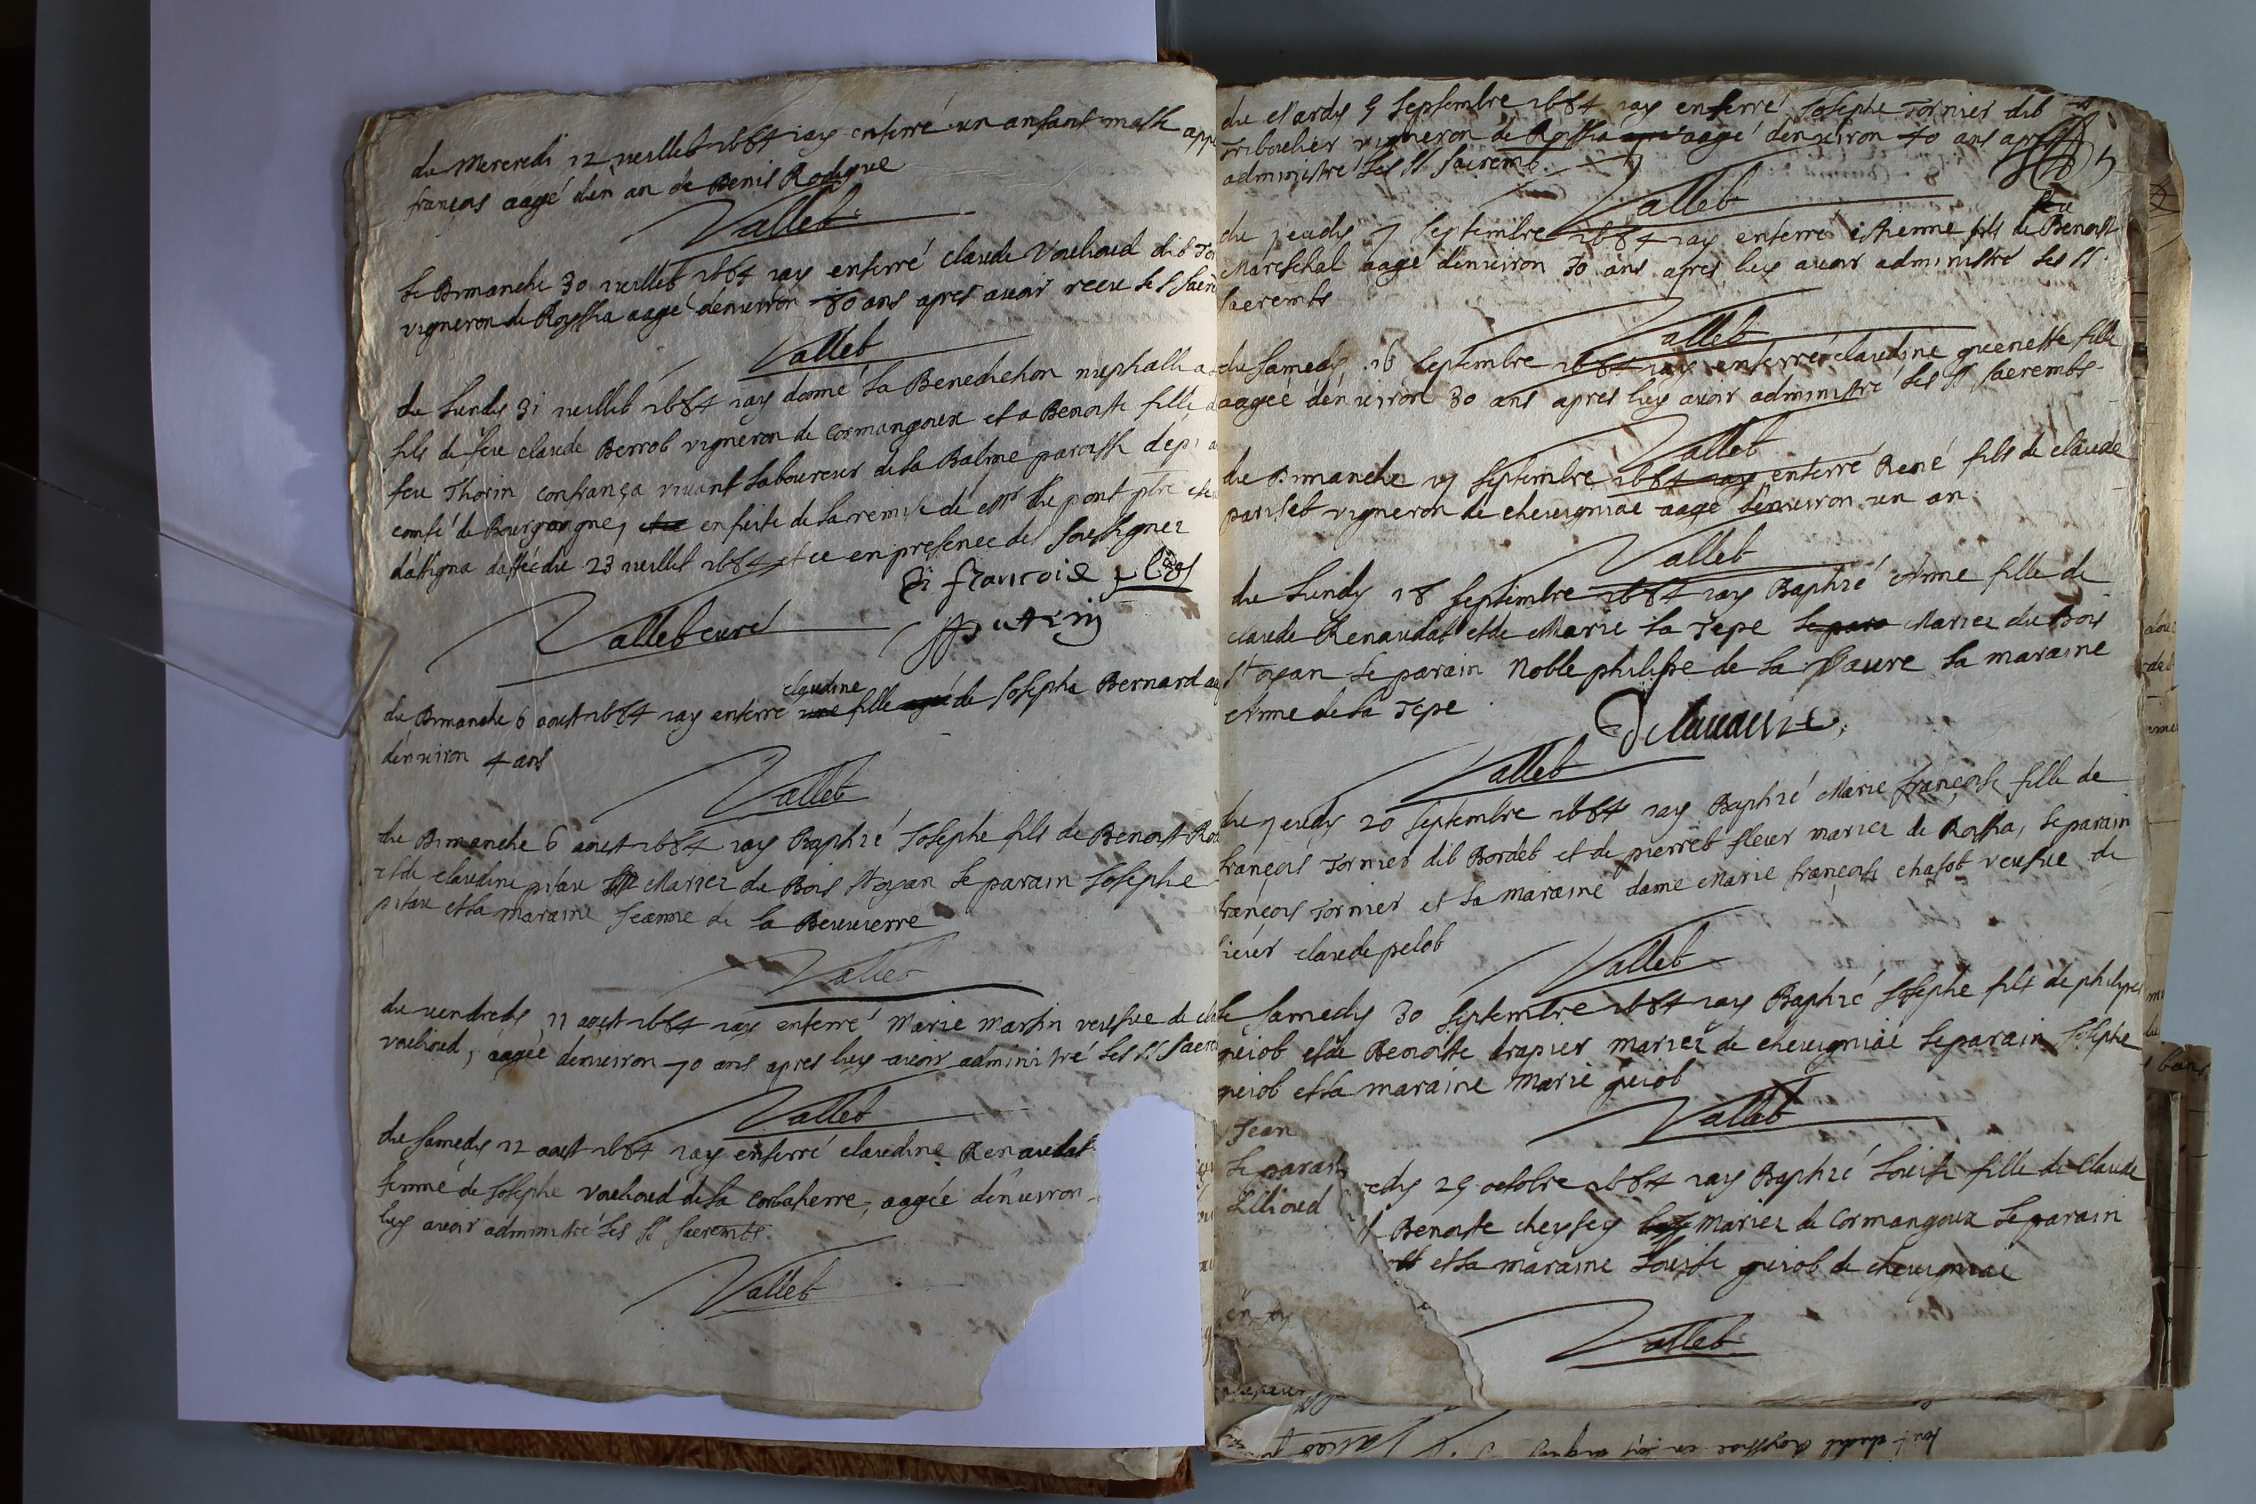 du Mercredi 12 juillet 1684 jay enterré un anfant masle app
françois aagé d'en an de Denis Rodigue
Vallet
Le Dimanche 30 juillet 1684 jay enterré claude Vouhoud dit
vigneron de Royssia aagé denviron 80 ans apres avoir receu les St Sacre
Vallet
du Lundy 31 juillet 1684 jay donné la Benediction nuptialle a
fils de feu claude Berrod vigneron de Cormangoux et a Benoiste fille
feu Thorin confrança vivant laboureur de la Balme paroisse
comté de Bourgongne, en suite de la remise de Mr du pont ptre
dattigna dattée du 23 juillet 1684 et ce en presence des soussignez
françois
Vallet curé
du Dimanche 6 aoust 1684 jay enterré claudine fille de Josephe Bernard
denviron 4 ans
Vallet
du Dimanche 6 aoust 1684 jay Baptizé Josephe fils de Benoist
et de claudine pitau Mariez du Bois St oyan le parain Josephe
pitau et la maraine Jeanne de la Beuvierre
Vallet
du vendredy 11 aoust 1684 jay enterré Marie Martin vesfve de
vouhoud, aagée denviron 70 ans apres luy avoir administré les St Sacre
Vallet
du Samedy 12 aoust 1684 jay enterré claudine Renaudat
femme de Josephe vouhoud de la Corbatierre, aagée denviron
luy avoir administré les St Sacremts.
Vallet
du Mardy 5 Septembre 1684 jay enterré Josephe Tornier dit
Triboulier vigneron de Royssia aagé denviron 70 ans apres
administré les St Sacremts.
Vallet
du jeudy 7 Septembre 1684 jay enterré estienne fils de feu Benoist
Mareschal aagé denviron 30 ans apres luy avoir administré les St
Sacremts
Vallet
du Samedy 16 Septembre 1684 jay enterré claudine guenette fille
aagée denviron 30 ans apres luy avoir administré les St Sacremts
Vallet
du Dimanche 17 Septembre 1684 jay enterré René fils de claude
pariset vigneron de cheveigniac aagé denviron un an
Vallet
du Lundy 18 Septembre 1684 jay Baptizé Anne fille de
claude Renaudat et de Marie la Tepe Mariez du Bois
St oyan le parain Noble philipe de la Vaure la maraine
Anne de la Tepe
Delavaure
Vallet
du jeudy 20 Septembre 1684 jay Baptizé Marie françoise fille de
françois Tornier dit Bordet et de pierret fleur mariez de Rossia, le parain
françois Tornier et la maraine dame Marie françoise chasot vesfve de
sieur claude pelot
Vallet
Le Samedy 30 Septembre 1684 jay Baptizé Josephe fils de philipe
guiob et de Benoiste drapier mariez de cheveigniac le parain Josephe
guiob et la maraine Marie guiob
Vallet
Jean
le parain
edy 29 octobre 1684 jay Baptizé Louise fille de Claude
Benoiste cheysey Mariez de Cormangoux le parain
et la maraine Louise guiob de cheveigniac
Vallet